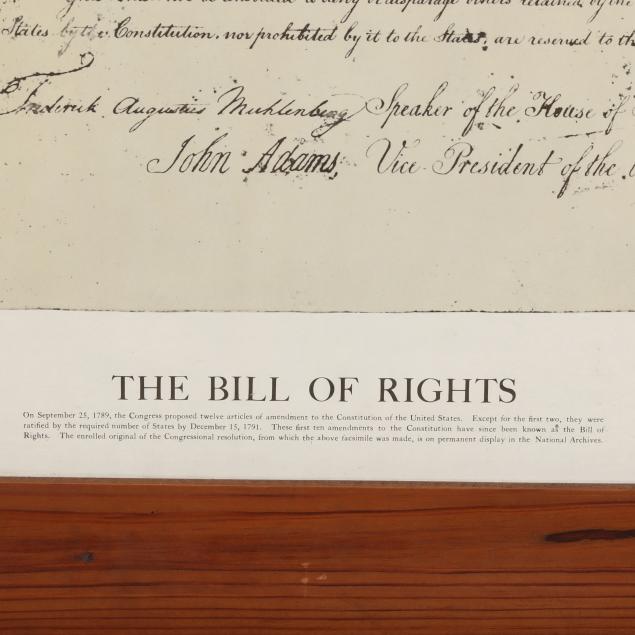 be disparage others retained by the
States by the Constitution, nor prohibited by it to the States, are reserved to th
Frederick Augustus Muhlenberg Speaker of the House of
John Adams, Vice-President of the
THE BILL OF RIGHTS
On September 25, 1789, the Congress proposed twelve articles of amendment to the Constitution of the United States. Except for the first two, they were
ratified by the required number of States by December 15, 1791. These first ten amendments to the Constitution have since been known as the Bill of
Rights. The enrolled original of the Congressional resolution, from which the above facsimile was made, is on permanent display in the National Archives.